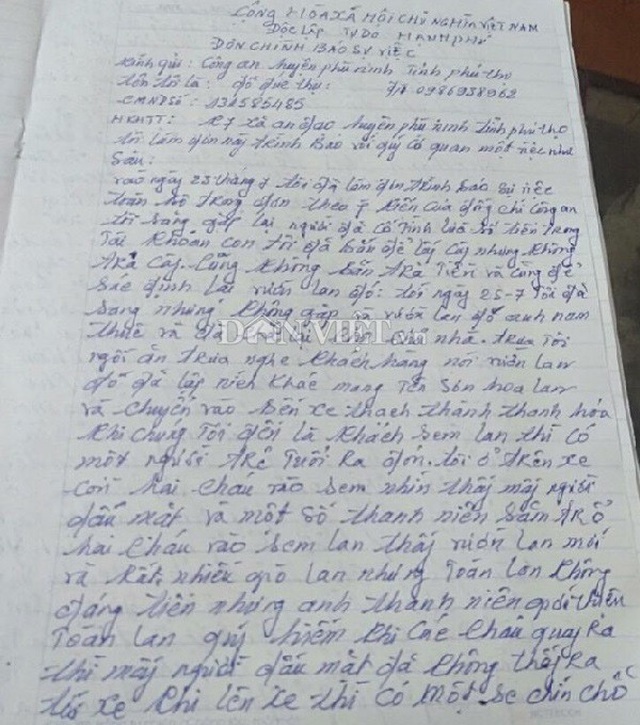 CỘNG HÒA XÃ HỘI CHỦ NGHĨA VIỆT NAM
Độc lập Tự Do HẠNH PHÚ
ĐƠN CHÌNH BÁO SỰ VIỆC
Kính gửi: Công an huyện phù ninh tỉnh phú thọ
tôn tôi là: đỗ đức thu: 0986938962
CMND số: 131585485
HKHTT: K7 xã an đạo huyện phù ninh tỉnh phú thọ
tôi làm đơn này trình báo với quý cơ quan một việc như
sau:
vào ngày 23 tháng 7 tôi đã làm đơn trình báo sự việc
trong đơn theo ý kiến của đồng chí công an
tôi sang gặp lại người đã cố tình lừa số tiền trong
tài khoản con tôi đã bán để lấy cây nhưng không
TRẢ Cây. Cũng không bắn TRẢ TIỀN và cũng để
sác định lại vườn lan đó: tới ngày 25-7 Tôi đã
sang nhưng không gặp và vườn lan đó anh nam
thuê và đã trả lại cho chủ nhà. trưa Tôi
DANVIET.vn
ngồi ăn trưa nghe khách hàng nói vườn lan
đó đã lập ních khác mang Tên Sơn hoa lan
và chuyển vào bến xe thạch thành thanh hóa
khi chúng Tôi đến là khách sem lan thì có
một người TRẺ TUỔI Ra đón. tôi ở TRÊN xe
còn hai cháu vào sem nhìn thấy mấy người
dấu mặt và một số thanh niên săm TRỔ
hai cháu vào sem lan thấy vườn lan mới
và Rất nhiều giò lan nhưng Toàn lan không
đáng tiền nhưng anh thanh niên giới thiệu
Toàn lan quý hiếm khi các cháu quay Ra
thì mấy người dấu mặt đã không thấy Ra
tới xe khi lên xe thì có một se chín chỗ